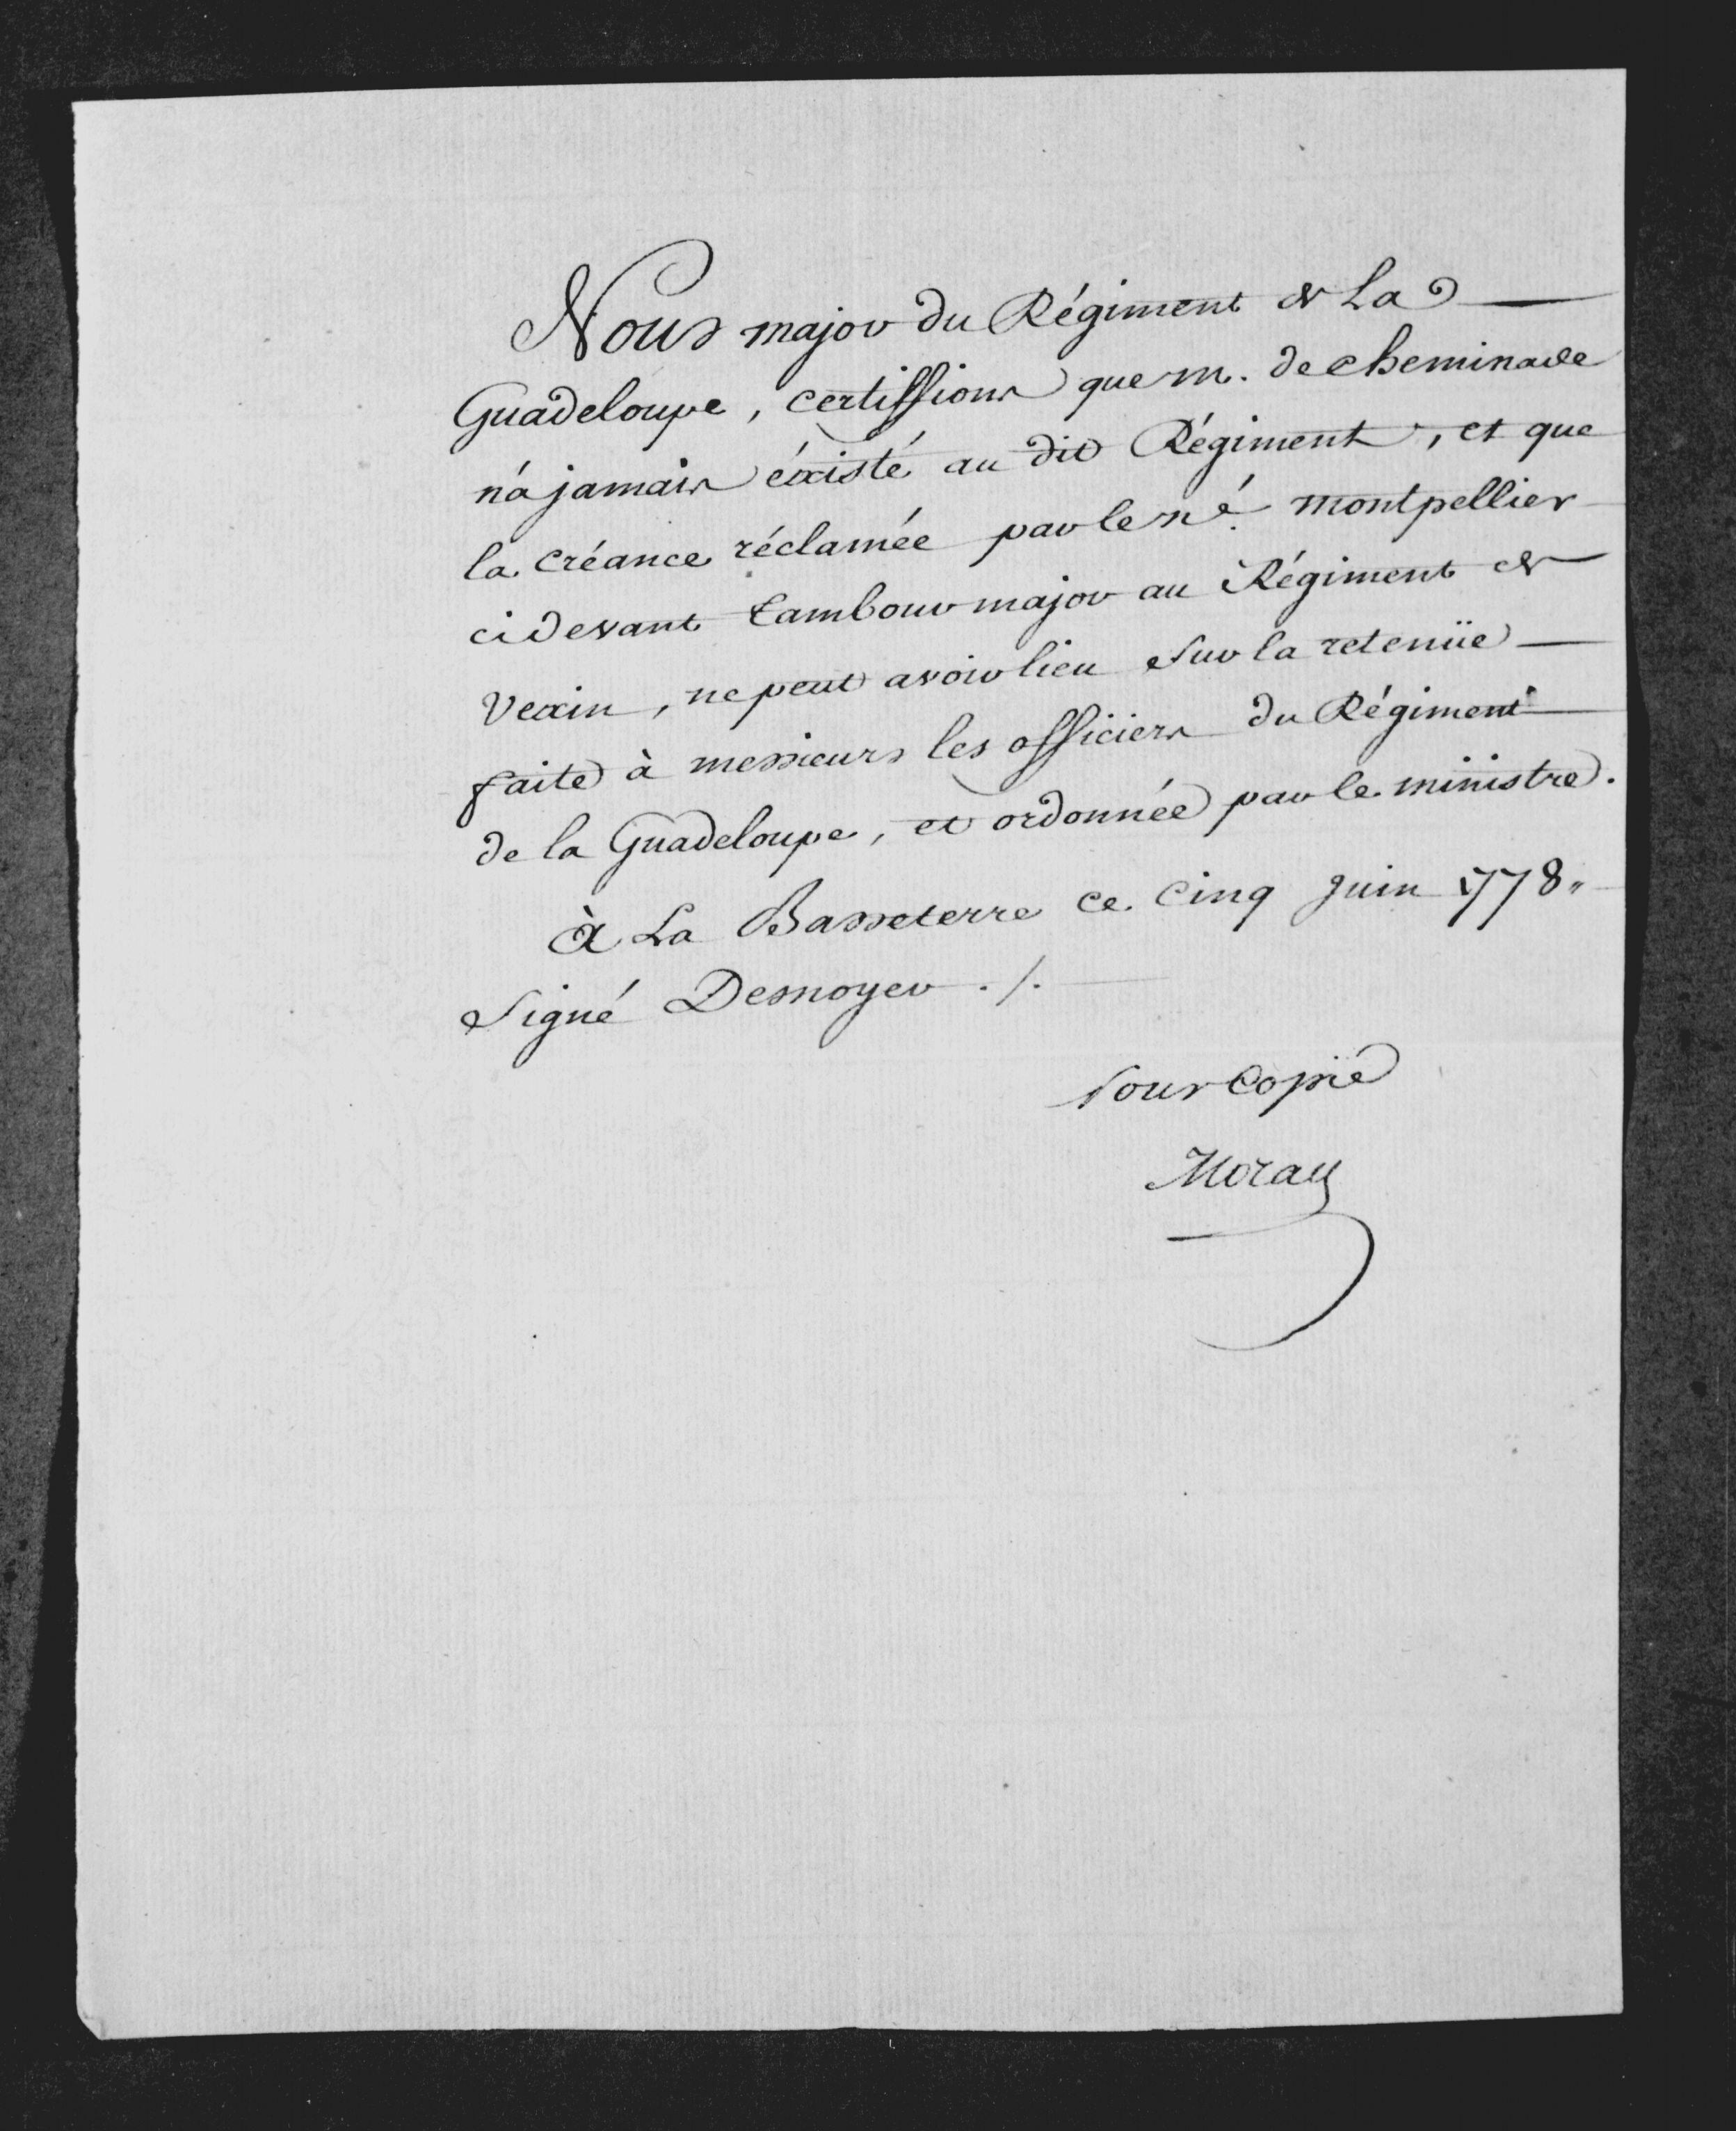 Nous major du Régiment de La
Guadeloupe, certiffions que m. de cheminade
n'a jamais éxisté au dit Régiment, et que
la créance réclamée par le né. montpellier
cidevant tambour major au Régiment de
Vexin, ne peut avoir lieu Sur la retenüe
faite à messieurs les officiers du Régiment
de la Guadeloupe, et ordonnée par le ministre.
à La Basseterre ce cinq juin 1778"
Signé Desnoyer ./.
Pour Copie